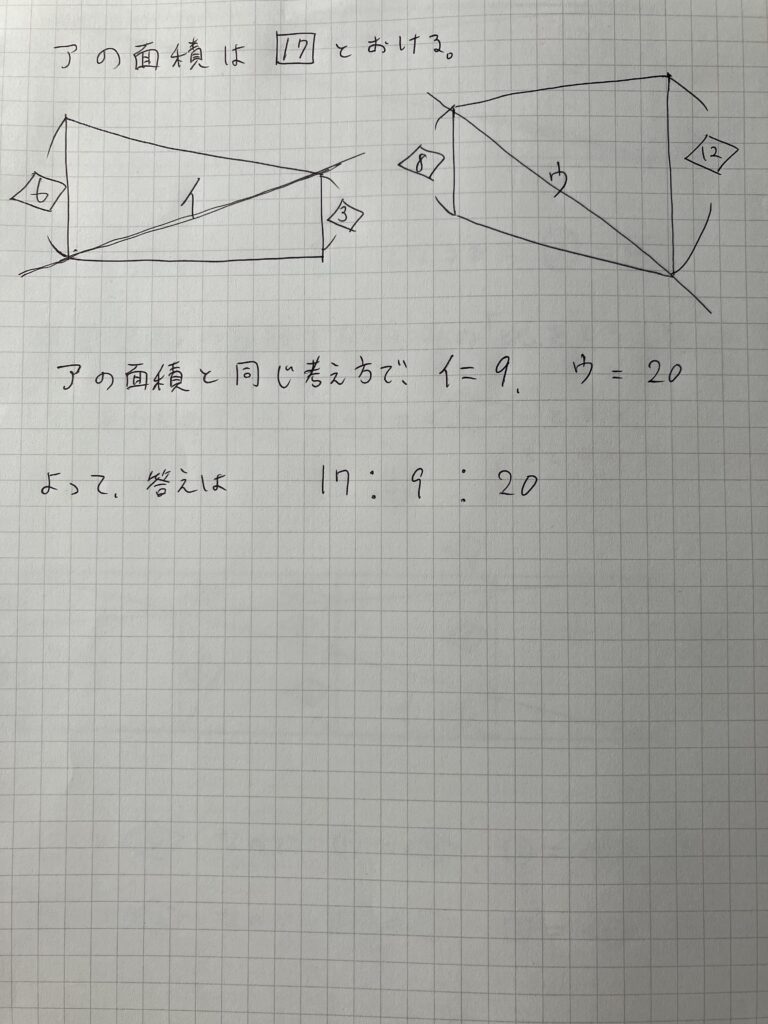 アの面積は 17 とおける。
6 イ 3
8 ウ 12
アの面積と同じ考え方で、イ=9. ウ=20
よって、答えは 17:9:20